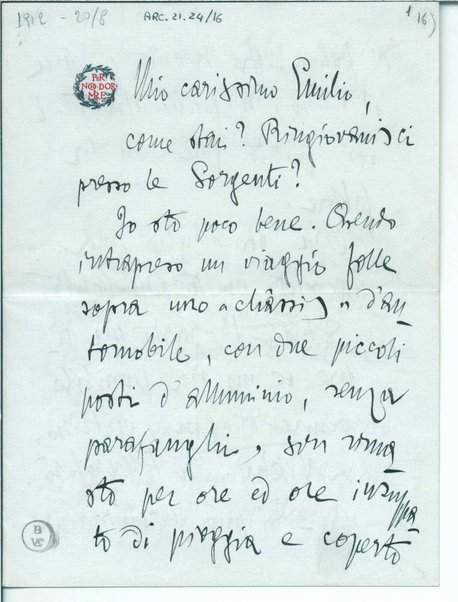 1912 - 20/8
ARC. 21. 24/16
16)
PER
NON DOR
MIRE
Mio carissimo Emilio,
come stai? Ringiovanisci
presso le Sorgenti?
Io sto poco bene. Avendo
intrapreso un viaggio folle
sopra uno «châssis» d'au
tomobile, con due piccoli
posti d'alluminio, senza
parafanghi, son rima
sto per ore ed ore inzuppa
to di pioggia e coperto